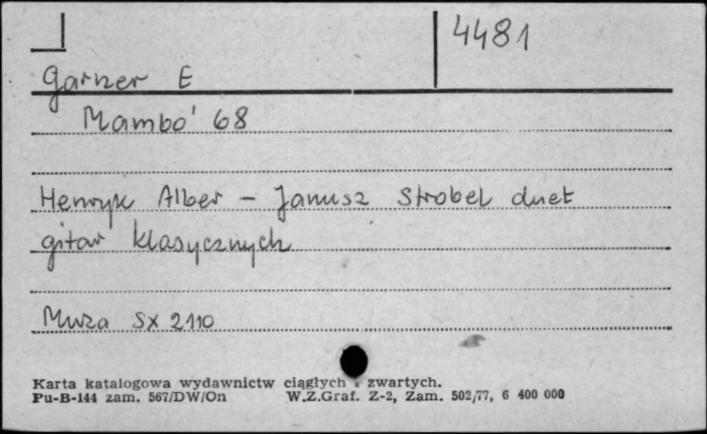 4481
Garner E
Mambo' 68
Henryk Alber - Janusz Strobel duet
gitar klasycznych
Muza SX 2110
Karta katalogowa wydawnictw ciągłych i zwartych.
Pu-B-144 zam. 567/DW/On W.Z.Graf. Z-2, Zam. 502/77, 6 400 000